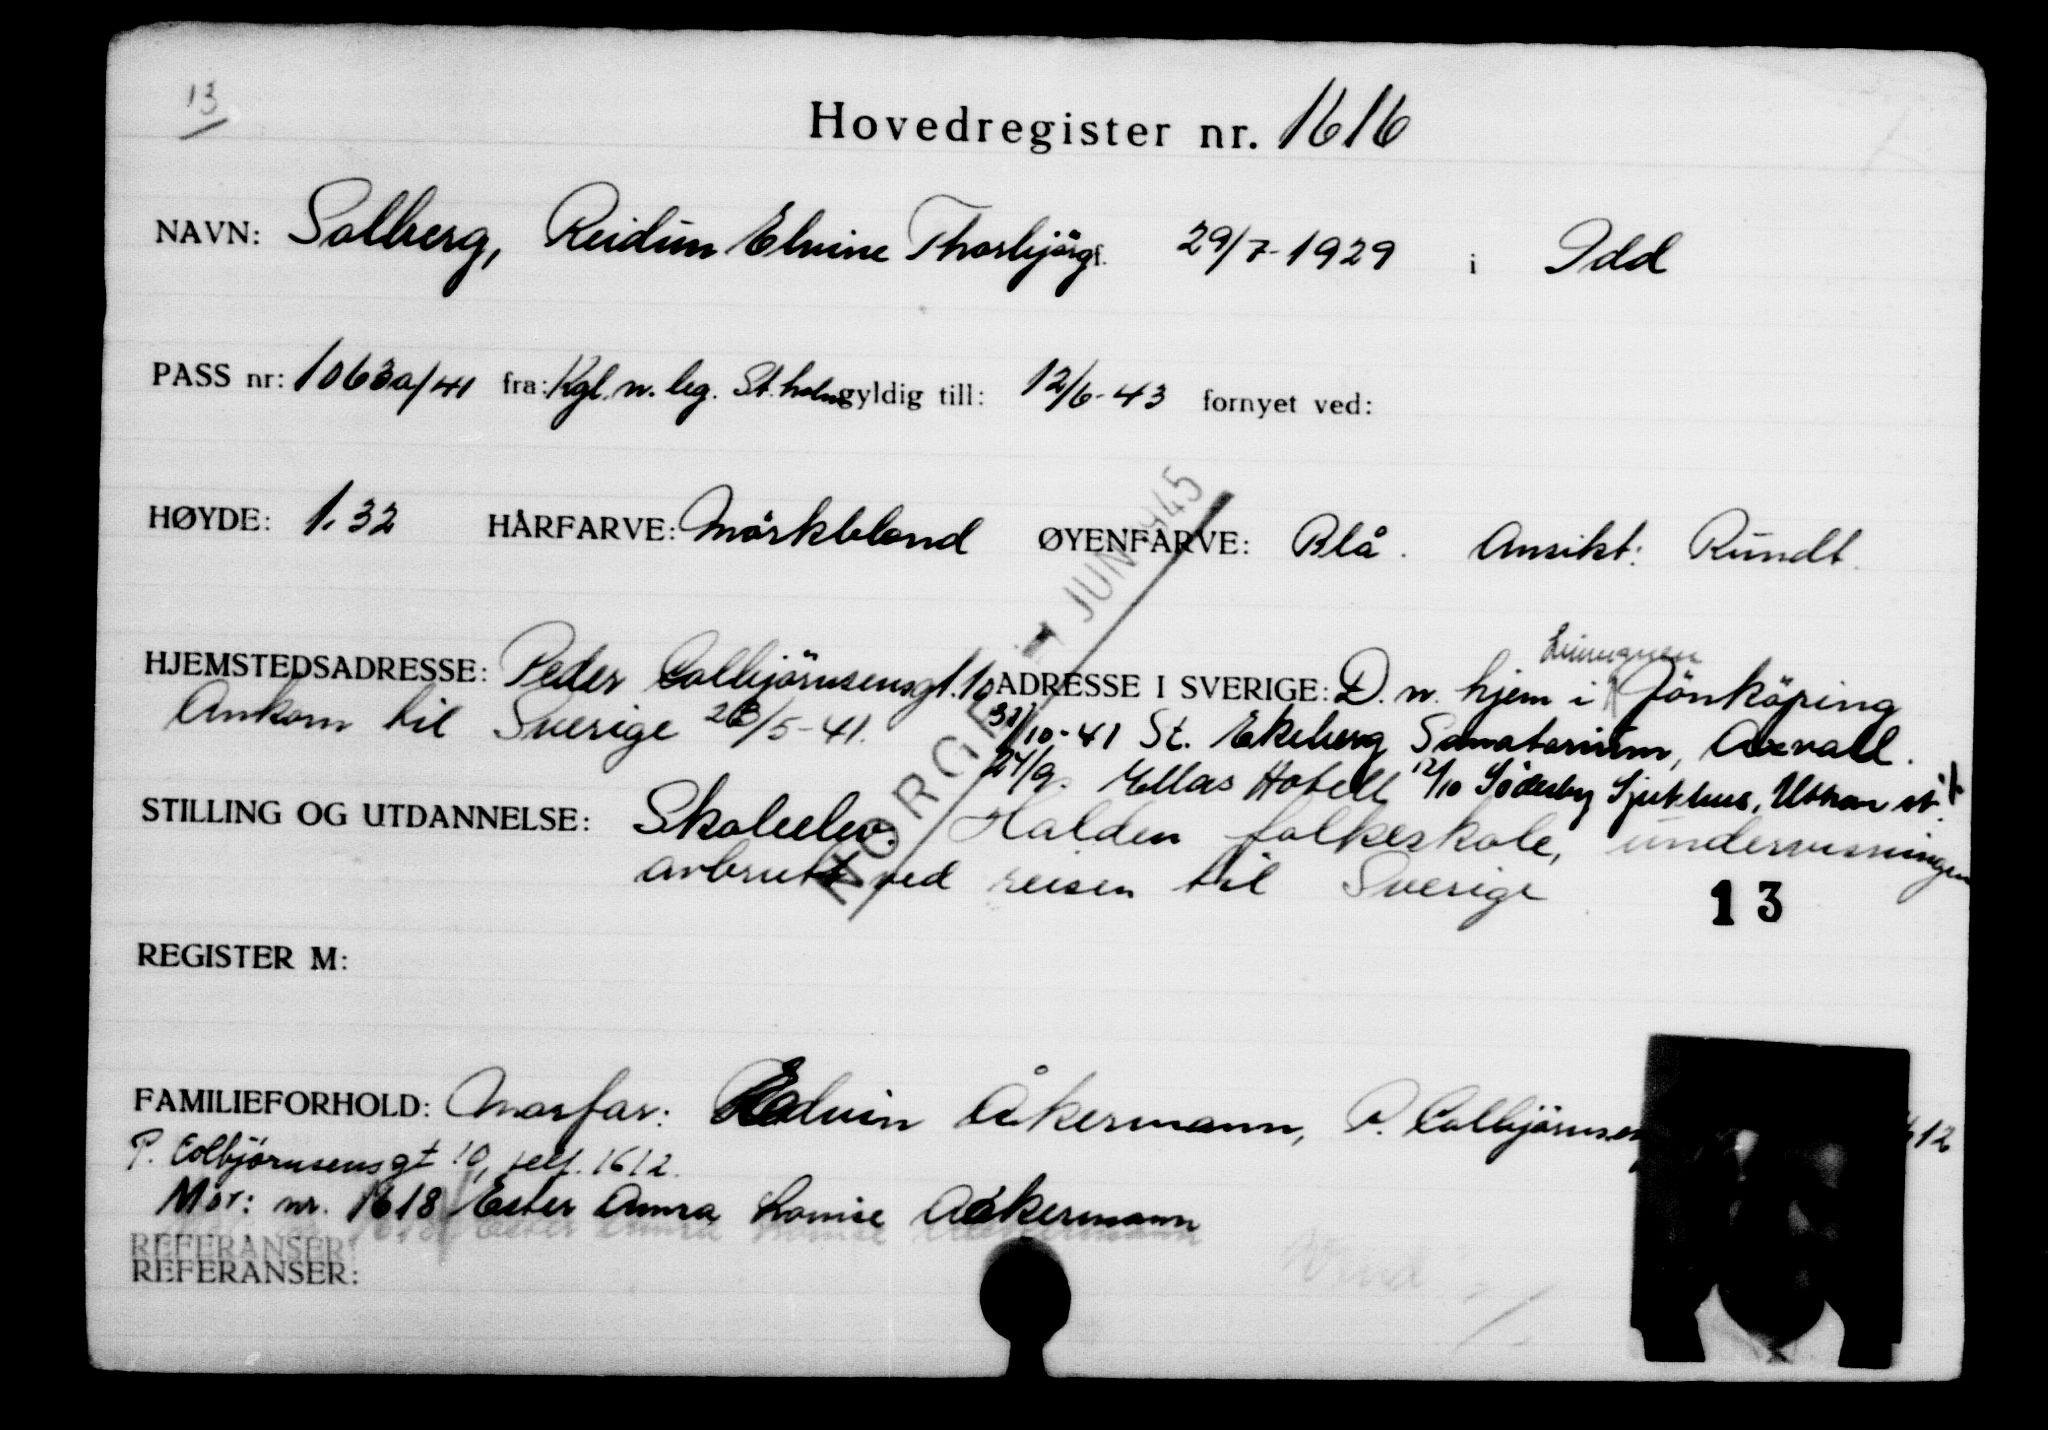 13
Hovedregister nr. 1616
NAVN: Solberg, Reidun Elvine Thorbjörg f. 29/7-1929 i Idd
PASS nr: 1063a/41 fra: Kgl. n. leg. St.holm gyldig till: 12/6-43 fornyet ved:
HØYDE: 1.32 HÅRFARVE: Mörkblond ØYENFARVE: Blå. Ansikt: Rundt.
NORGE JUN 1945
HJEMSTEDSADRESSE: Peder Colbjörnsensgt. 10 ADRESSE I SVERIGE: D. n. hjem i Jönköping
Ankom til Sverige /5-41. /10-41 St. Ekeberg Sanatorium, Axvall.
24/9. Ellas Hotell 12/10 Söderby Sjukhus, Uttran st.
STILLING OG UTDANNELSE: Skoleelev. Halden folkeskole, undervisningen
avbrutt ved reisen til Sverige
13
REGISTER M:
FAMILIEFORHOLD: Morfar: Edvin Åkermann, P. Colbjörnsen 12
P. Colbjørnsensgt 10, telf. 1612.
Mor: nr. 1618 Ester Anna Lovise Aakermann
REFERANSER:
REFERANSER:
Vend